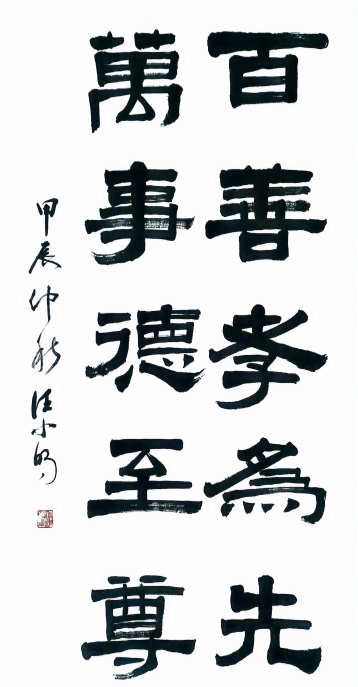 百善孝為先
萬事德至尊
甲辰仲秋汪小明